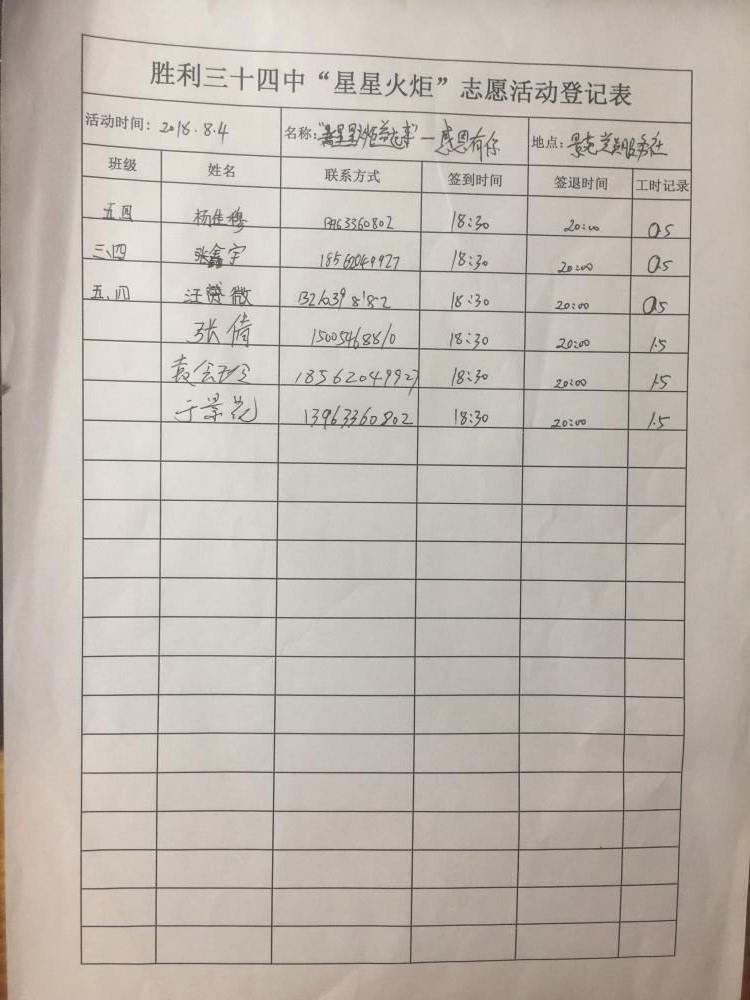 胜利三十四中“星星火炬”志愿活动登记表
活动时间: 2018.8.4 名称: 一感恩有你 地点:
班级 姓名 联系方式 签到时间 签退时间 工时记录
五四 杨佳穆 13963360802 18:30 20:00 0.5
三.四 张鑫宇 18562049927 18:30 20:00 0.5
五.四 汪 微 18:30 20:00 0.5
张倩 15005468810 18:30 20:00 1.5
袁会玲 18562049927 18:30 20:00 1.5
于景花 13963360802 18:30 20:00 1.5